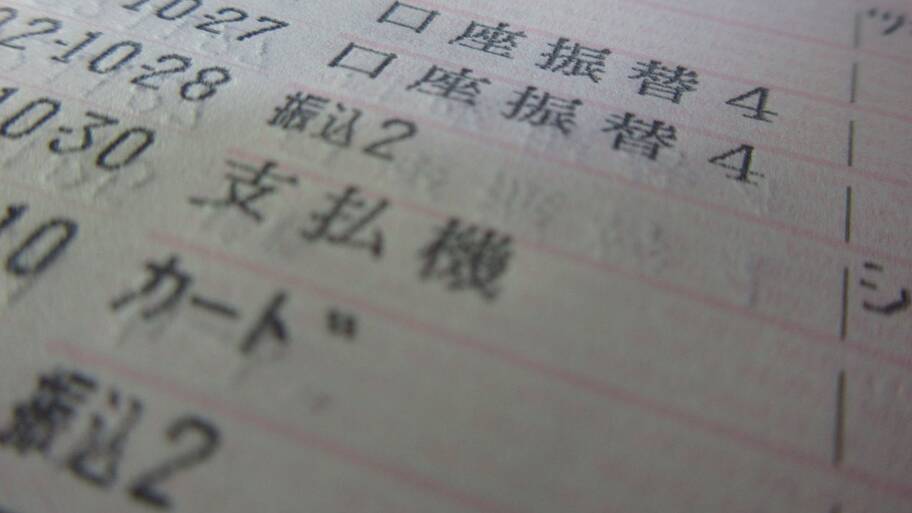 10-27 口座振替4
2-10-28 口座振替4
10-30 振込2
支払機
10 カード
シ
振込2